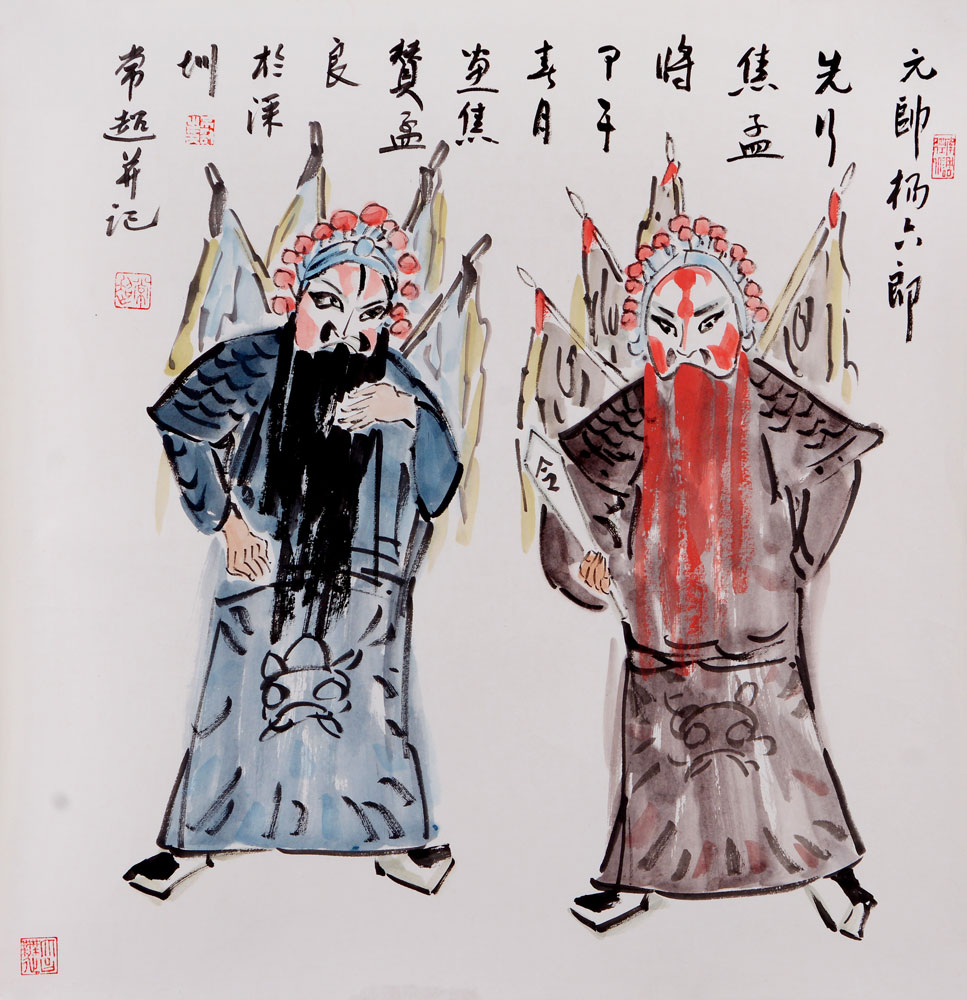 元帥杨六郎
先行
焦孟
將
甲午
春月
画焦
贊孟
良
於深
圳
常超并记
令